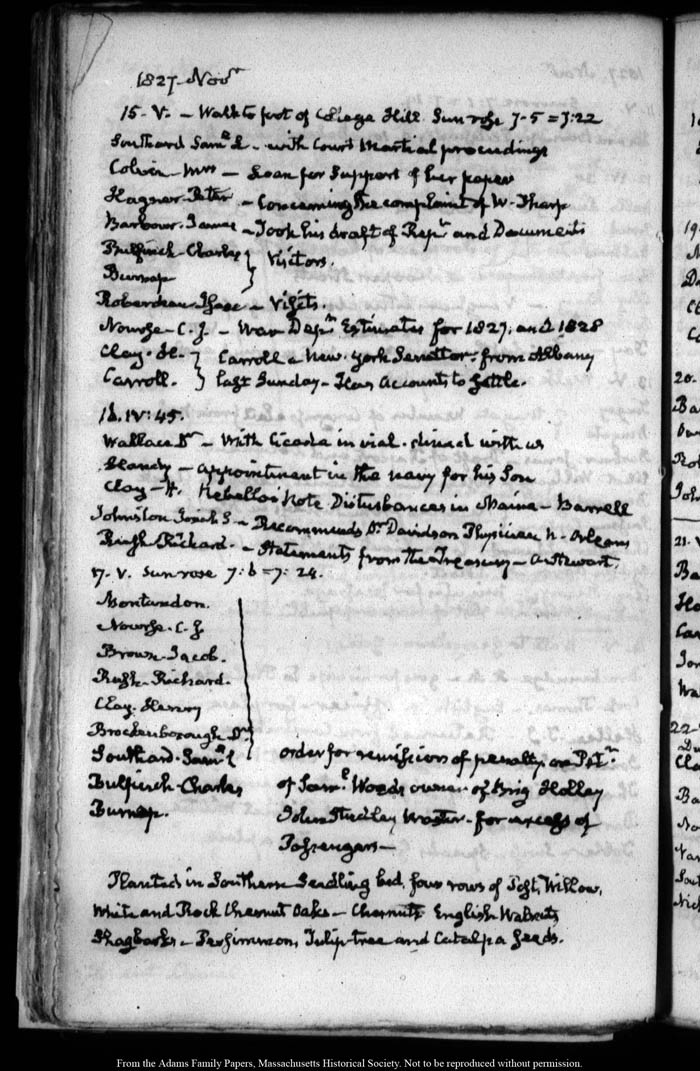 1827. Novr
15. V. – Walk to foot of College Hill. Sun rose 7-5 = 7:22
Southard Saml L. – with Court Martial proceedings
Colvin – Mrs – Loan for Support of her paper
Hagner – Peter – Concerning the complaint of W. Tharp
Barbour. James – Took his draft of Rept and Documents
Bulfinch – Charles } Visitors.
Burnap
Roberdeau Isaac – Visits.
Nourse – C. J. – War Dept Estimates for 1827. and 1828
Clay. H. } Carroll a New-York Senator from Albany
Carroll. } last Sunday – Has Accounts to Settle.
16. IV: 45.
Wallace Dr – With Cicada in vial. dined with us
Handy – appointment in the navy for his Son
Clay – H. Rebello's Note Disturbances in Maine – Barrell
Johnston Josiah S – Recommends Dr Davidson Physician N. Orleans
Rush Richard. – Statements from the Treasury – Stewart.
17. V. Sun rose 7:6 = 7:24.
Montandon.
Nourse. C. J
Brown. Jacob.
Rush. Richard.
Clay. Henry
Brockenborough Dr
Southard. Saml L order for remission of penalty on Petn
Bulfinch – Charles of Saml Woods owner of Brig Holley
Burnap. John Studley Master – for excess of
Passengers –
Planted in Southern Seedling bed, four rows of Willow,
White and Rock Chesnut Oaks – Chesnuts English Walnuts
Shagbarks – Persimmon, Tulip-tree and Catalpa Seeds.
19.
20.
21.
22
From the Adams Family Papers, Massachusetts Historical Society. Not to be reproduced without permission.